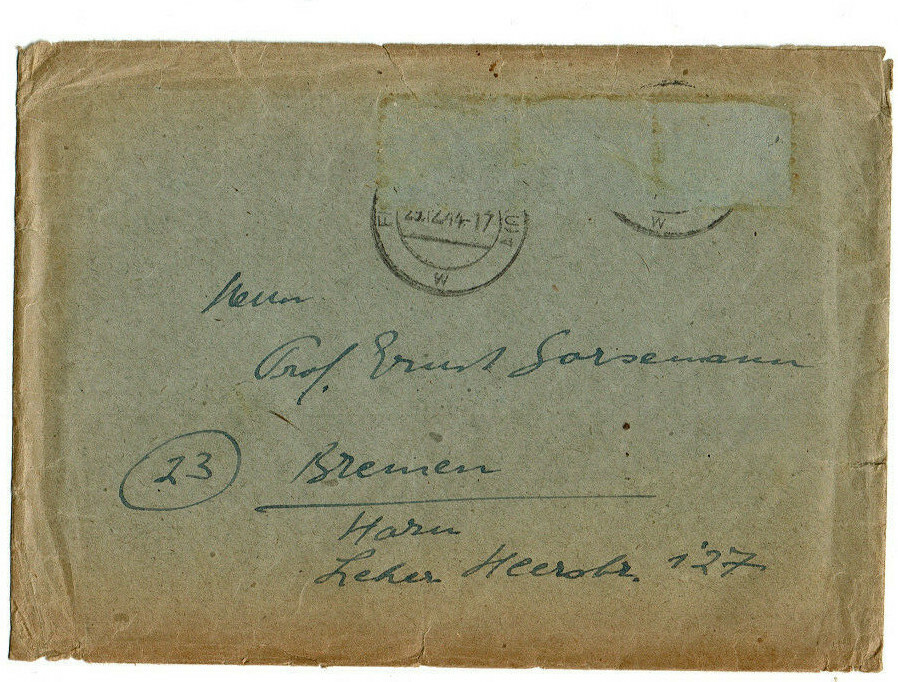 23.12.44-17
W
W
Herrn
Prof. Ernst Gorsemann
23 Bremen
Horn
Leher Heerstr. 127